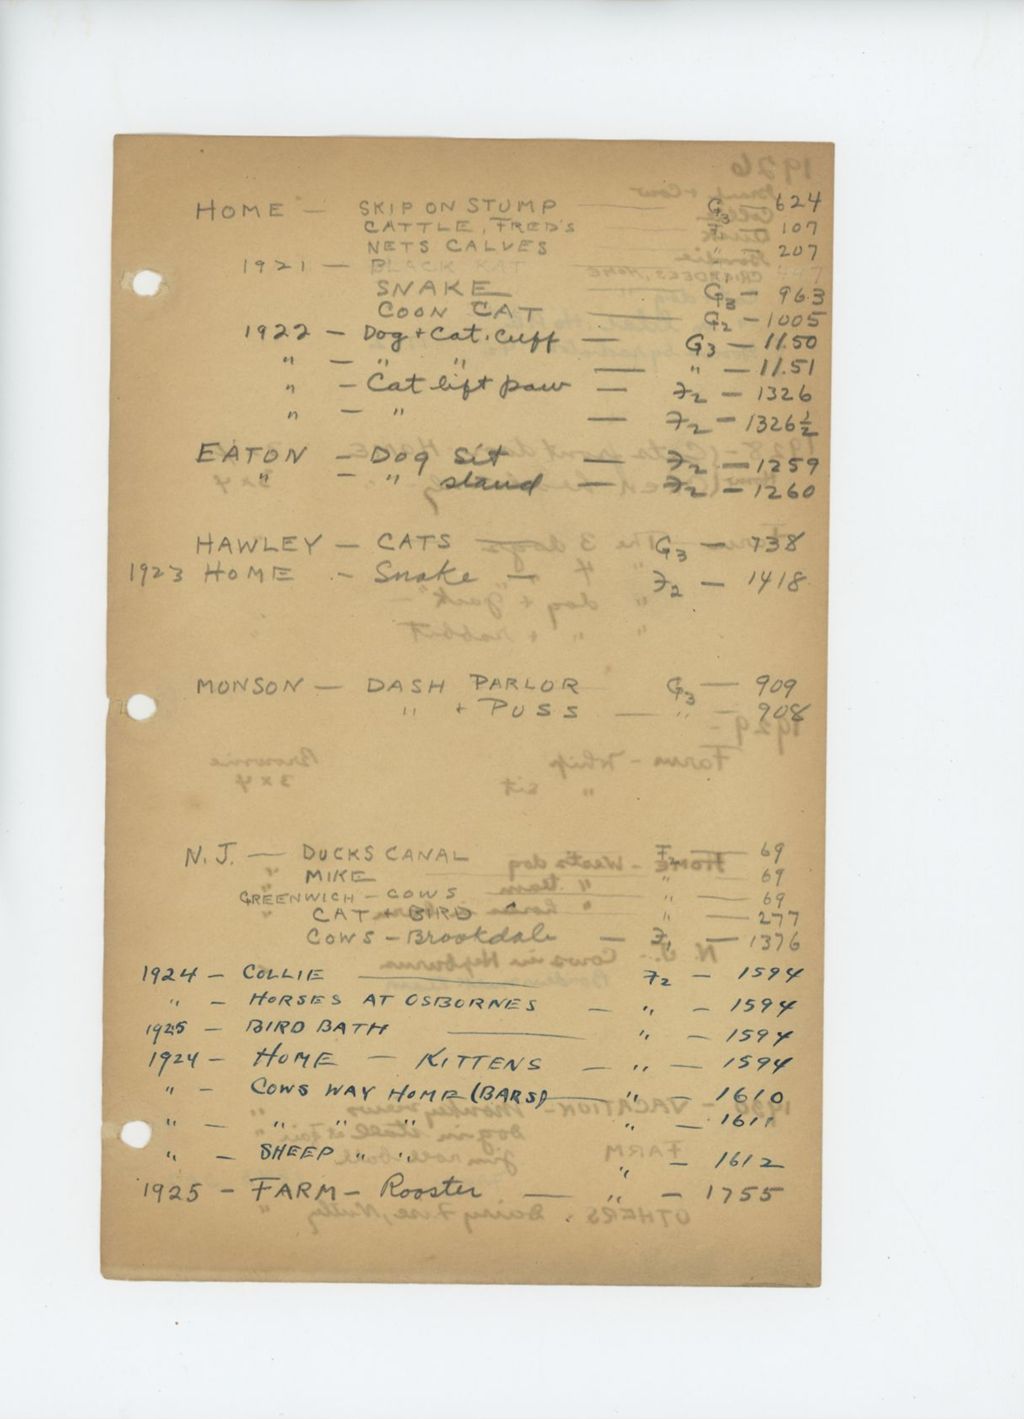 HOME — SKIP ON STUMP — G3 — 624
CATTLE, FRED'S — F2 — 107
NETS CALVES — " — 207
1921 — BLACK KAT
SNAKE — G3 — 963
COON CAT — G2 — 1005
1922 — Dog + Cat. Cuff — G3 — 11.50
" — " " — " — 11.51
" — Cat lift paw — F2 — 1326
" — " — F2 — 1326½
EATON — Dog Sit — F2 — 1259
" — " stand — F2 — 1260
HAWLEY — CATS — G3 — 738
1923 HOME — Snake — F2 — 1418
MONSON — DASH PARLOR G3 — 909
" + PUSS — " — 908
N.J. — DUCKS CANAL — F2 — 69
MIKE — " — 69
GREENWICH — COWS — " — 69
CAT + BIRD — " — 277
COWS — Brookdale — F1 — 1376
1924 — COLLIE — F2 — 1594
" — HORSES AT OSBORNES — " — 1594
1925 — BIRD BATH — " — 1594
1924 — HOME — KITTENS — " — 1594
" — COWS WAY HOME (BARS) — " — 1610
" — " " " " — 1611
" — SHEEP " " " — 1612
1925 — FARM — Rooster — " — 1755